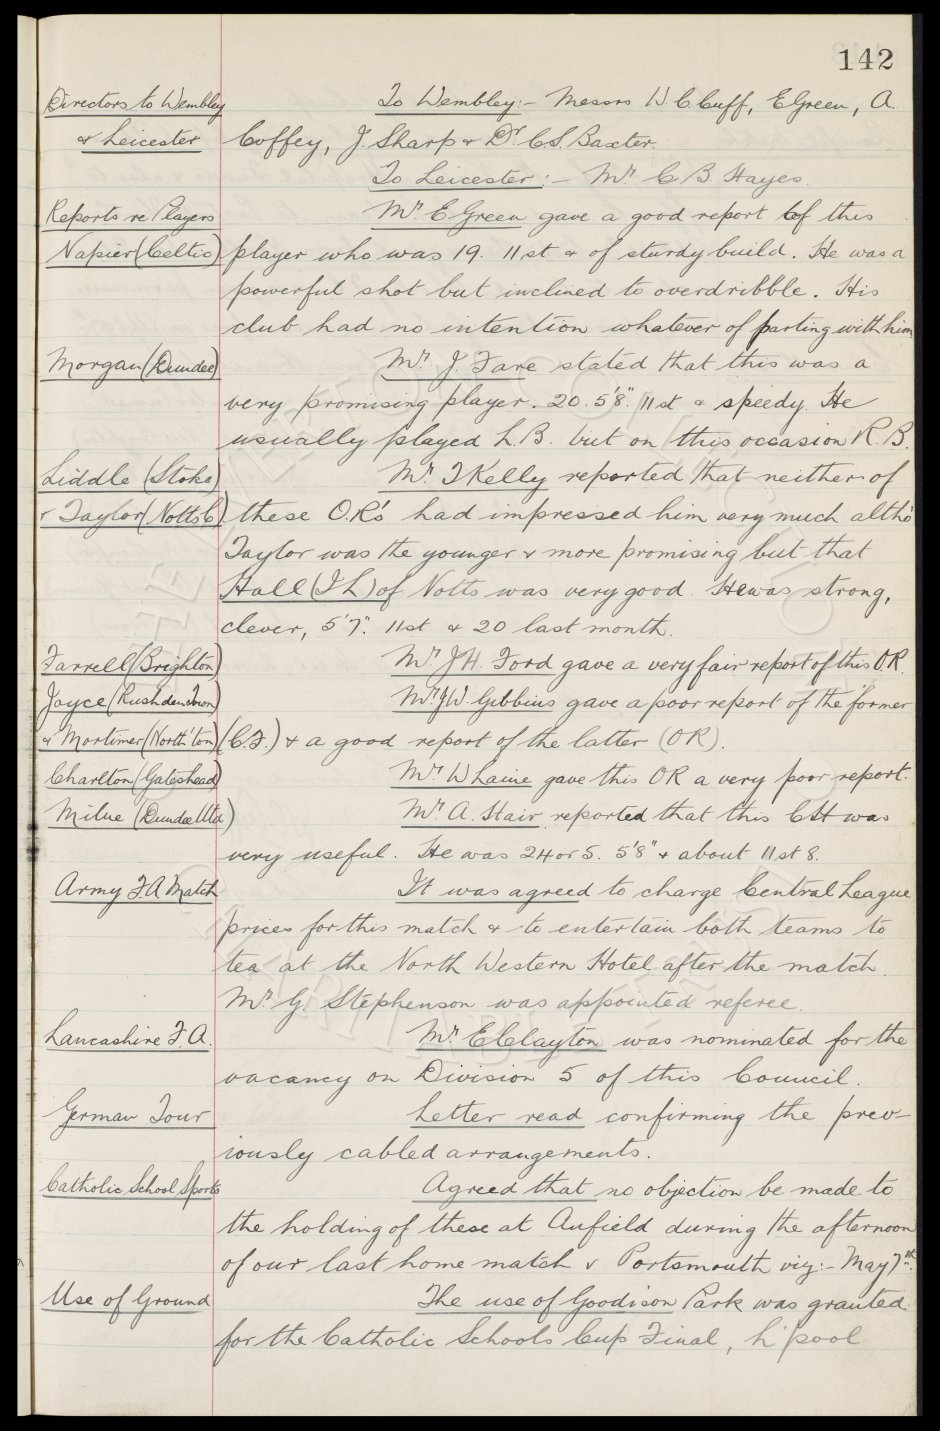 142
Directors to Wembley To Wembley:- Messrs W C Cuff, E Green, A.
& Leicester Coffey, J. Sharp & Dr. C.S. Baxter.
To Leicester:- Mr. C B. Hayes.
Reports re Players Mr. E Green gave a good report of this
Napier (Celtic) player who was 19. 11st & of sturdy build. He was a
powerful shot but inclined to overdribble. His
club had no intention whatever of parting with him
Morgan (Dundee) Mr. J. Fare stated that this was a
very promising player. 20. 5'8". 11st & speedy. He
usually played L.B. but on this occasion R.B.
Liddle (Stoke) Mr. T Kelly reported that neither of
& Taylor (Notts C) these O.R's had impressed him very much altho'
Taylor was the younger & more promising but that
Hall (I L) of Notts was very good. He was strong,
clever, 5'7". 11st & 20 last month.
Farrell (Brighton) Mr. J H. Ford gave a very fair report of this O.R.
Joyce (Rushden Town) Mr. J W. Gibbins gave a poor report of the former
& Mortimer (North'ton) (C.F.) & a good report of the latter (OR).
Charlton (Gateshead) Mr. W Laine gave this OR a very poor report.
Milne (Dundee Utd) Mr. A. Hair reported that this CH was
very useful. He was 24 or 5. 5'8" & about 11st 8.
Army F A Match It was agreed to charge Central League
prices for this match & to entertain both teams to
tea at the North Western Hotel after the match.
Mr. G. Stephenson was appointed referee.
Lancashire F.A. Mr. E Clayton was nominated for the
vacancy on Division 5 of this Council.
German Tour Letter read confirming the prev-
iously cabled arrangements.
Catholic School Sports Agreed that no objection be made to
the holding of these at Anfield during the afternoon
of our last home match v Portsmouth viz:- May 7th.
Use of Ground The use of Goodison Park was granted
for the Catholic Schools Cup Final, L'pool